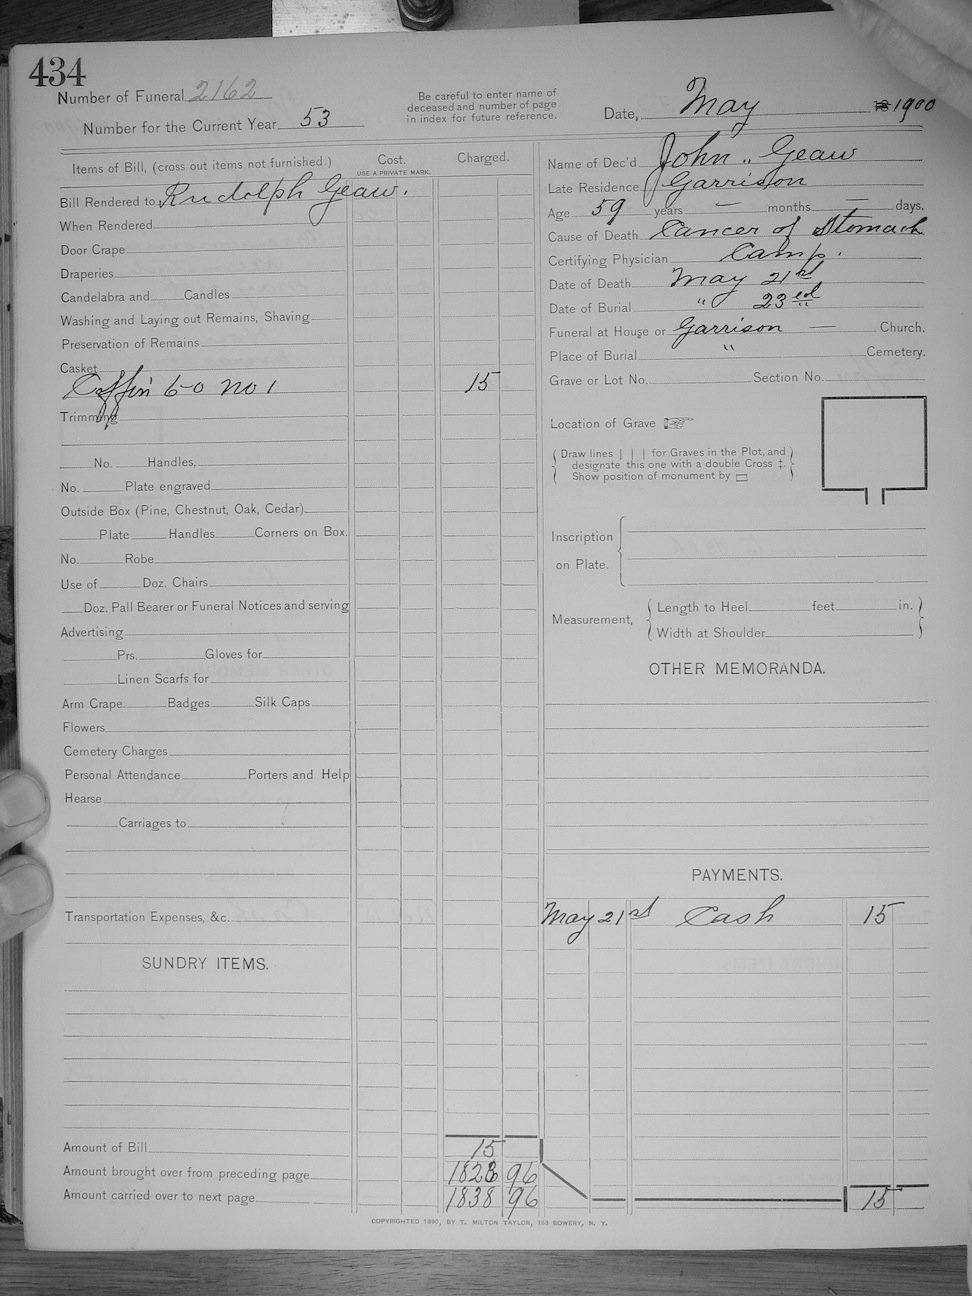 434
Number of Funeral 2162
Number for the Current Year 53
Be careful to enter name of
deceased and number of page
in index for future reference.
Date, May 18 1900
Items of Bill, (cross out items not furnished.) Cost. Charged.
USE A PRIVATE MARK.
Bill Rendered to Rudolph Geaw.
When Rendered
Door Crape
Draperies
Candelabra and Candles
Washing and Laying out Remains, Shaving
Preservation of Remains
Casket
Coffin 6-0 no 1 15
Trimming
No. Handles,
No. Plate engraved
Outside Box (Pine, Chestnut, Oak, Cedar)
Plate Handles Corners on Box.
No. Robe
Use of Doz. Chairs
Doz. Pall Bearer or Funeral Notices and serving
Advertising
Prs. Gloves for
Linen Scarfs for
Arm Crape Badges Silk Caps
Flowers
Cemetery Charges
Personal Attendance Porters and Help
Hearse
Carriages to
Transportation Expenses, &c.
SUNDRY ITEMS.
Amount of Bill 15
Amount brought over from preceding page 1823 96
Amount carried over to next page 1838 96
Name of Dec'd John Geaw
Late Residence Garrison
Age 59 years — months — days.
Cause of Death Cancer of Stomach
Certifying Physician Camp.
Date of Death May 21st
Date of Burial " 23rd
Funeral at House or Garrison — Church.
Place of Burial " Cemetery.
Grave or Lot No. Section No.
Location of Grave ☞
Draw lines | | | for Graves in the Plot, and
designate this one with a double Cross ‡.
Show position of monument by ▭
Inscription
on Plate.
Measurement, Length to Heel feet in.
Width at Shoulder
OTHER MEMORANDA.
PAYMENTS.
May 21st Cash 15
15
COPYRIGHTED 1890, BY T. MILTON TAYLOR, 163 BOWERY, N. Y.